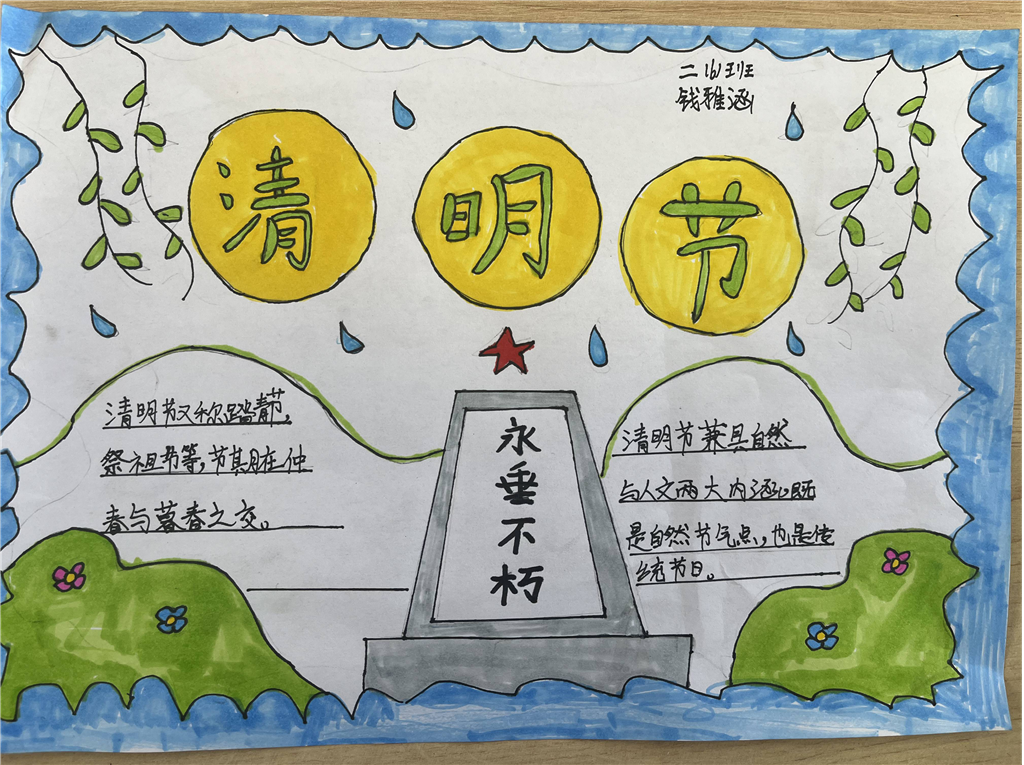 二(6)班
钱雅涵
清明节
清明节又称踏青节,
祭祖节等,节其月在仲
春与暮春之交。
永垂不朽
清明节兼具自然
与人文两大内涵。既
是自然节气点,也是传
统节日。